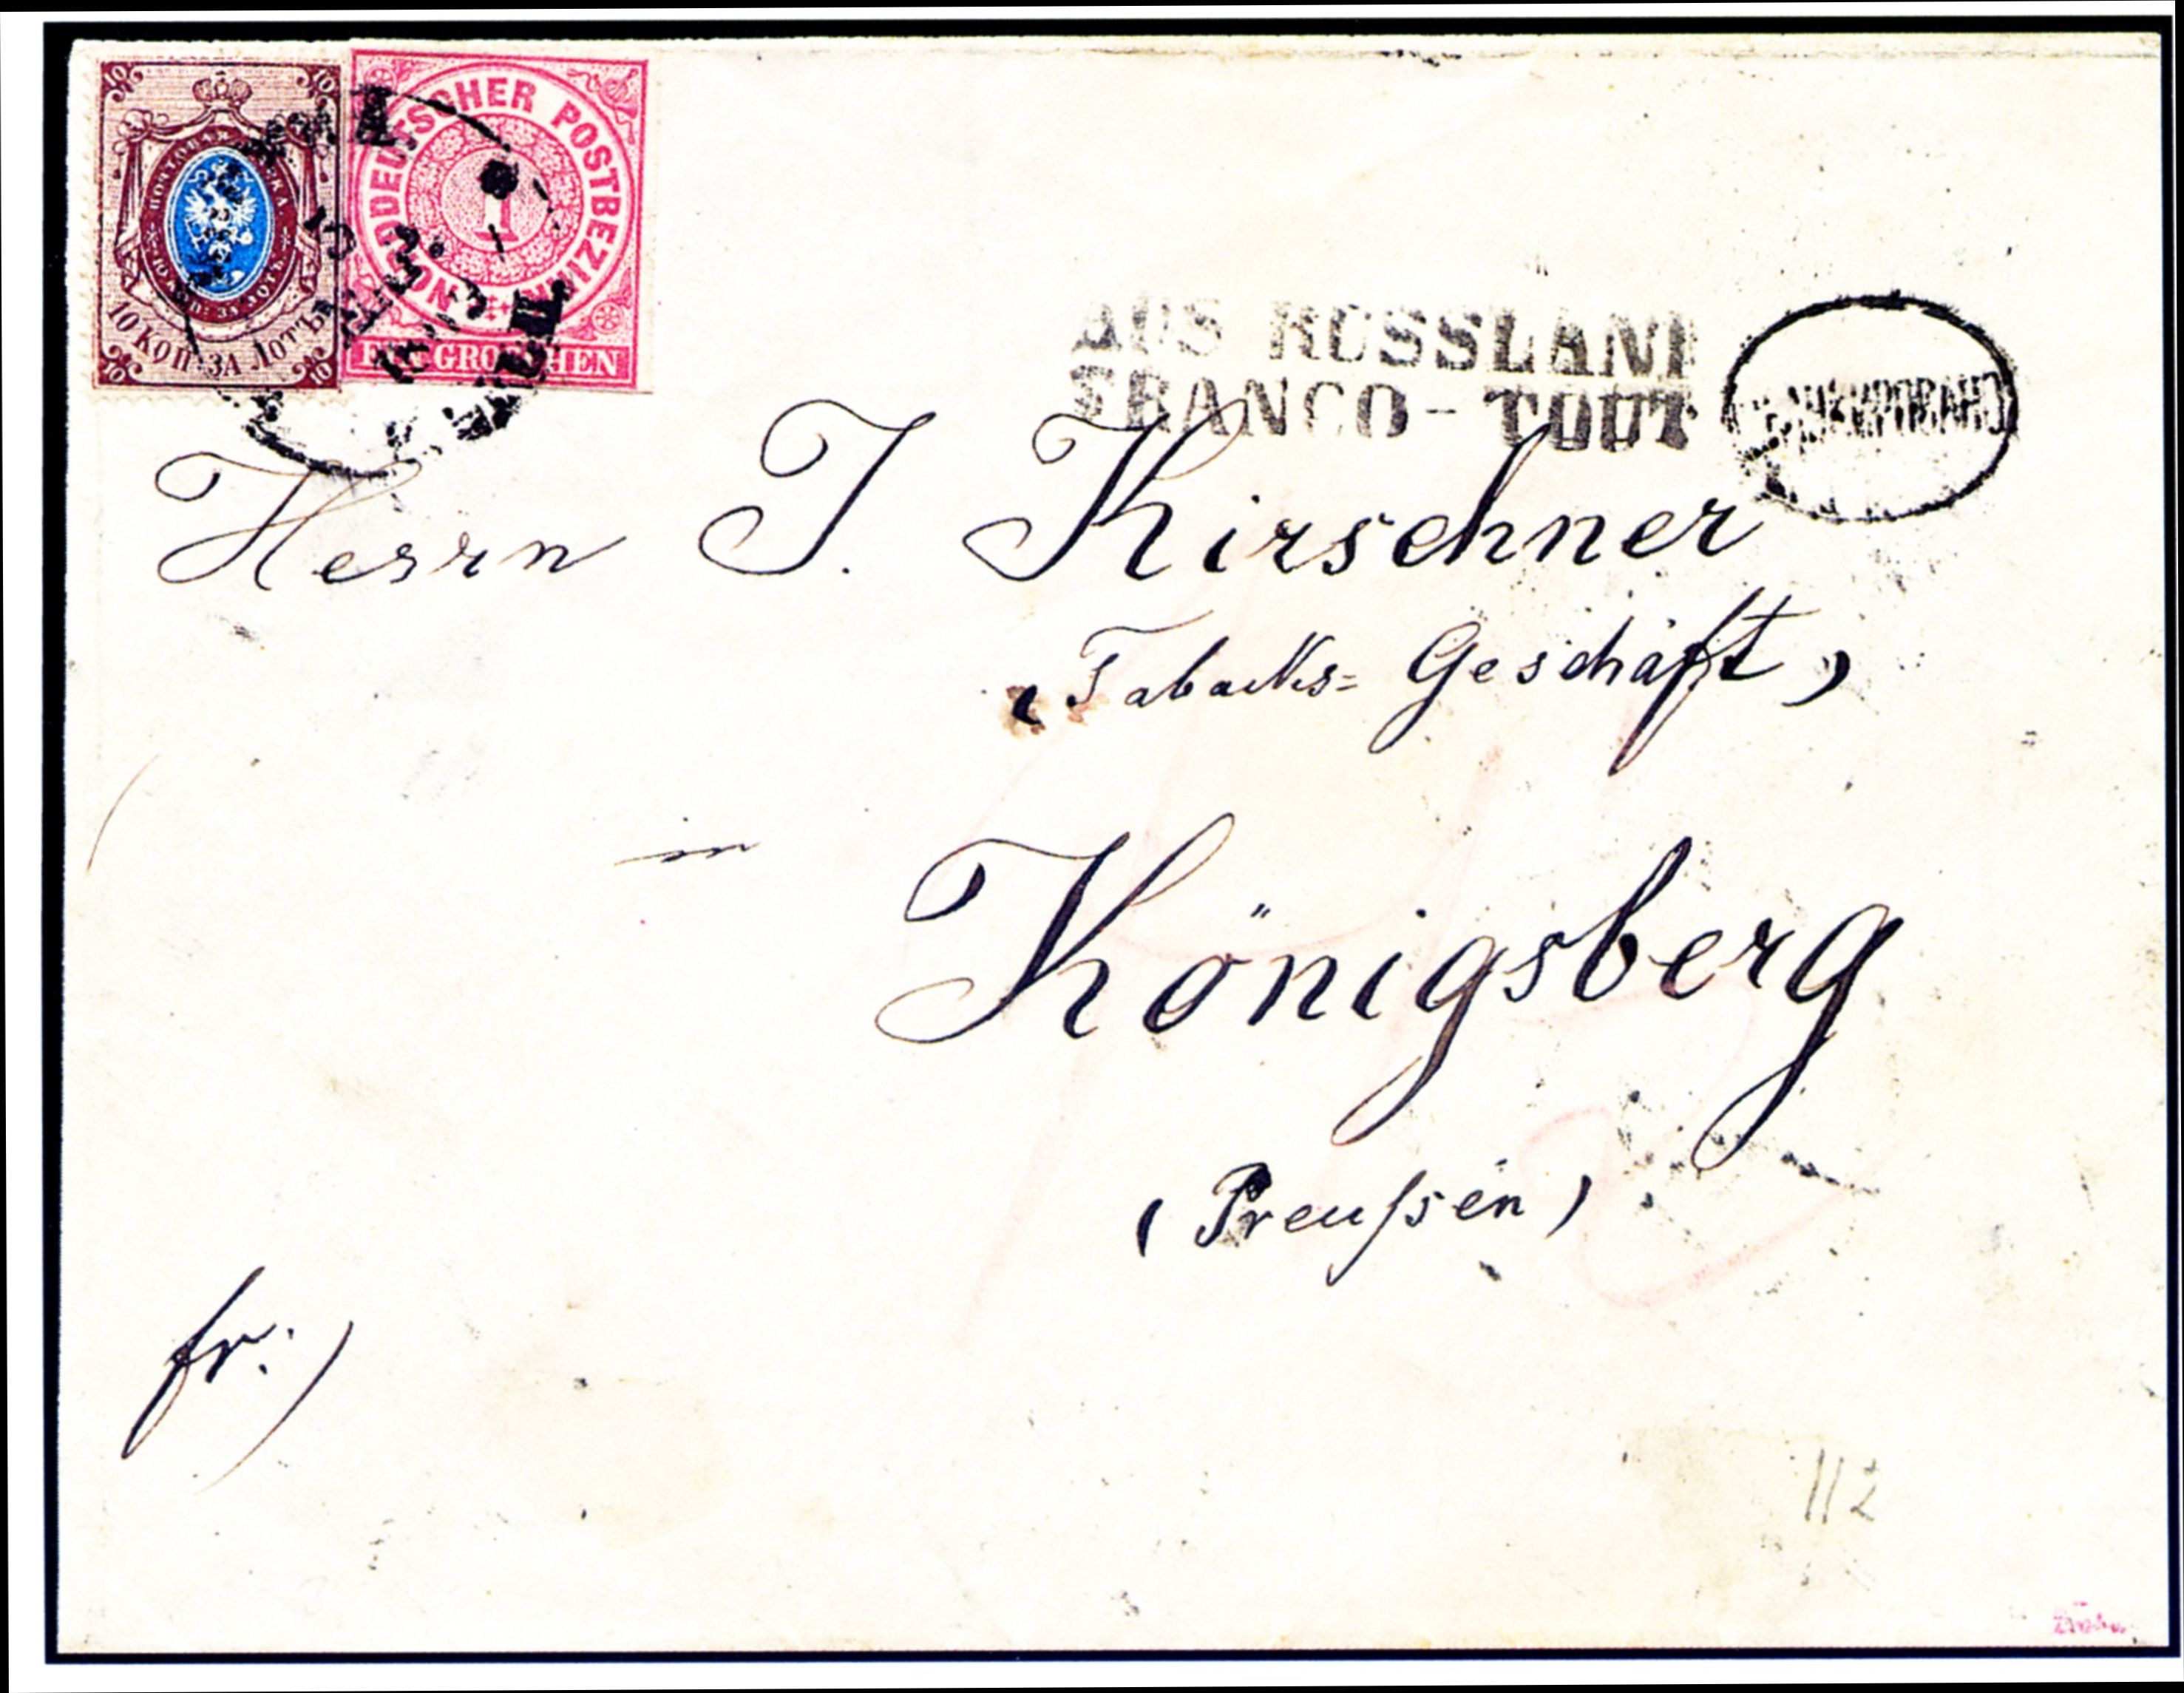 10 10
10 КОП. ЗА ЛОТЪ
10 10
NORDDEUTSCHER POSTBEZIRK
1
EIN GROSCHEN
AUS RUSSLAND
FRANCO-TOUT
Herrn J. Kirschner
(Tabacks= Geschäft)
in
Königsberg
(Preußen)
fr:)
112